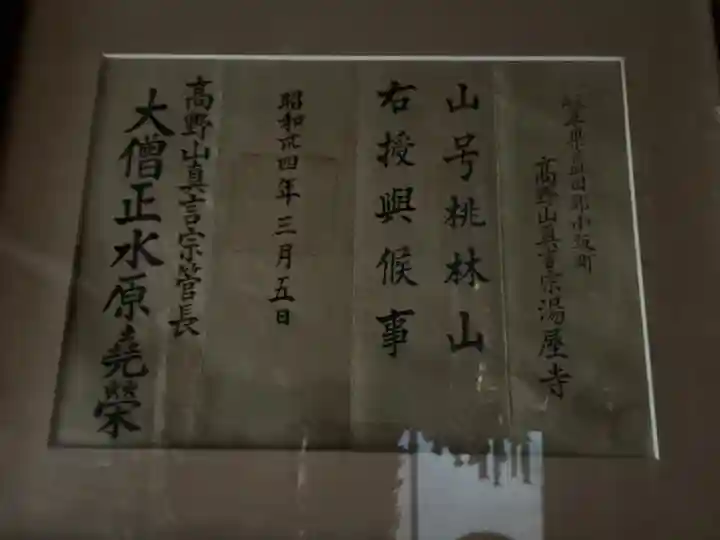 岐阜県益田郡小坂町
高野山真言宗湯屋寺
山号桃林山
右授與候事
昭和卅四年三月五日
高野山真言宗管長
大僧正水原堯榮